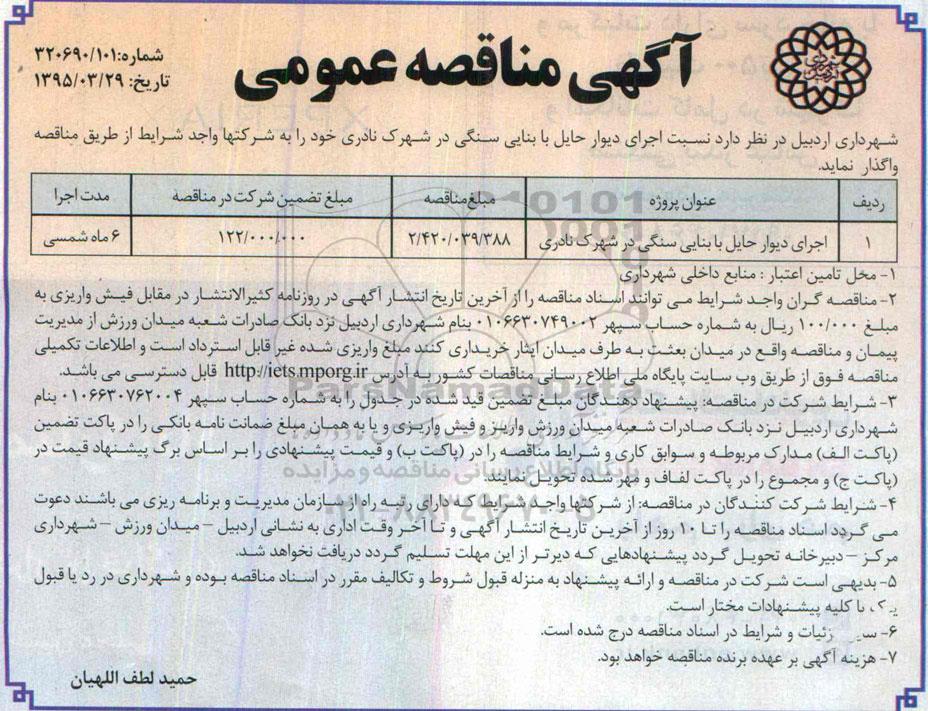 آگهی مناقصه عمومی
شماره:۳۲۰۶۹۰/۱۰۱
تاریخ: ۱۳۹۵/۰۳/۲۹
شهرداری اردبیل در نظر دارد نسبت اجرای دیوار حایل با بنایی سنگی در شهرک نادری خود را به شرکتها واجد شرایط از طریق مناقصه
واگذار نماید.
ردیف عنوان پروژه مبلغ مناقصه مبلغ تضمین شرکت در مناقصه مدت اجرا
۱ اجرای دیوار حایل با بنایی سنگی در شهرک نادری ۲/۴۲۰/۰۳۹/۳۸۸ ۱۲۲/۰۰۰/۰۰۰ ۶ ماه شمسی
۱- محل تامین اعتبار : منابع داخلی شهرداری
۲- مناقصه گران واجد شرایط می توانند اسناد مناقصه را از آخرین تاریخ انتشار آگهی در روزنامه کثیرالانتشار در مقابل فیش واریزی به
مبلغ ۱۰۰/۰۰۰ ریال به شماره حساب سپهر ۰۱۰۶۶۳۰۷۴۹۰۰۲ بنام شهرداری اردبیل نزد بانک صادرات شعبه میدان ورزش از مدیریت
پیمان و مناقصه واقع در میدان بعثت به طرف میدان ایثار خریداری کنند مبلغ واریزی شده غیر قابل استرداد است و اطلاعات تکمیلی
مناقصه فوق از طریق وب سایت پایگاه ملی اطلاع رسانی مناقصات کشور به آدرس http://iets.mporg.ir قابل دسترسی می باشد.
۳- شرایط شرکت در مناقصه: پیشنهاد دهندگان مبلغ تضمین قید شده در جدول را به شماره حساب سپهر ۰۱۰۶۶۳۰۷۶۲۰۰۴ بنام
شهرداری اردبیل نزد بانک صادرات شعبه میدان ورزش واریز و فیش واریزی و یا به همان مبلغ ضمانت نامه بانکی را در پاکت تضمین
(پاکت الف) مدارک مربوطه و سوابق کاری و شرایط مناقصه را در (پاکت ب) و قیمت پیشنهادی را بر اساس برگ پیشنهاد قیمت در
(پاکت ج) و مجموع را در پاکت لفاف و مهر شده تحویل نمایند.
۴- شرایط شرکت کنندگان در مناقصه: از شرکتها واجد شرایط که دارای رتبه راه از سازمان مدیریت و برنامه ریزی می باشند دعوت
می گردد اسناد مناقصه را تا ۱۰ روز از آخرین تاریخ انتشار آگهی و تا آخر وقت اداری به نشانی اردبیل – میدان ورزش – شهرداری
مرکز – دبیرخانه تحویل گردد پیشنهادهایی که دیرتر از این مهلت تسلیم گردد دریافت نخواهد شد.
۵- بدیهی است شرکت در مناقصه و ارائه پیشنهاد به منزله قبول شروط و تکالیف مقرر در اسناد مناقصه بوده و شهرداری در رد یا قبول
یک یا کلیه پیشنهادات مختار است.
۶- سایر جزئیات و شرایط در اسناد مناقصه درج شده است.
۷- هزینه آگهی بر عهده برنده مناقصه خواهد بود.
حمید لطف اللهیان
ParsNamadData
پایگاه اطلاع رسانی مناقصه و مزایده